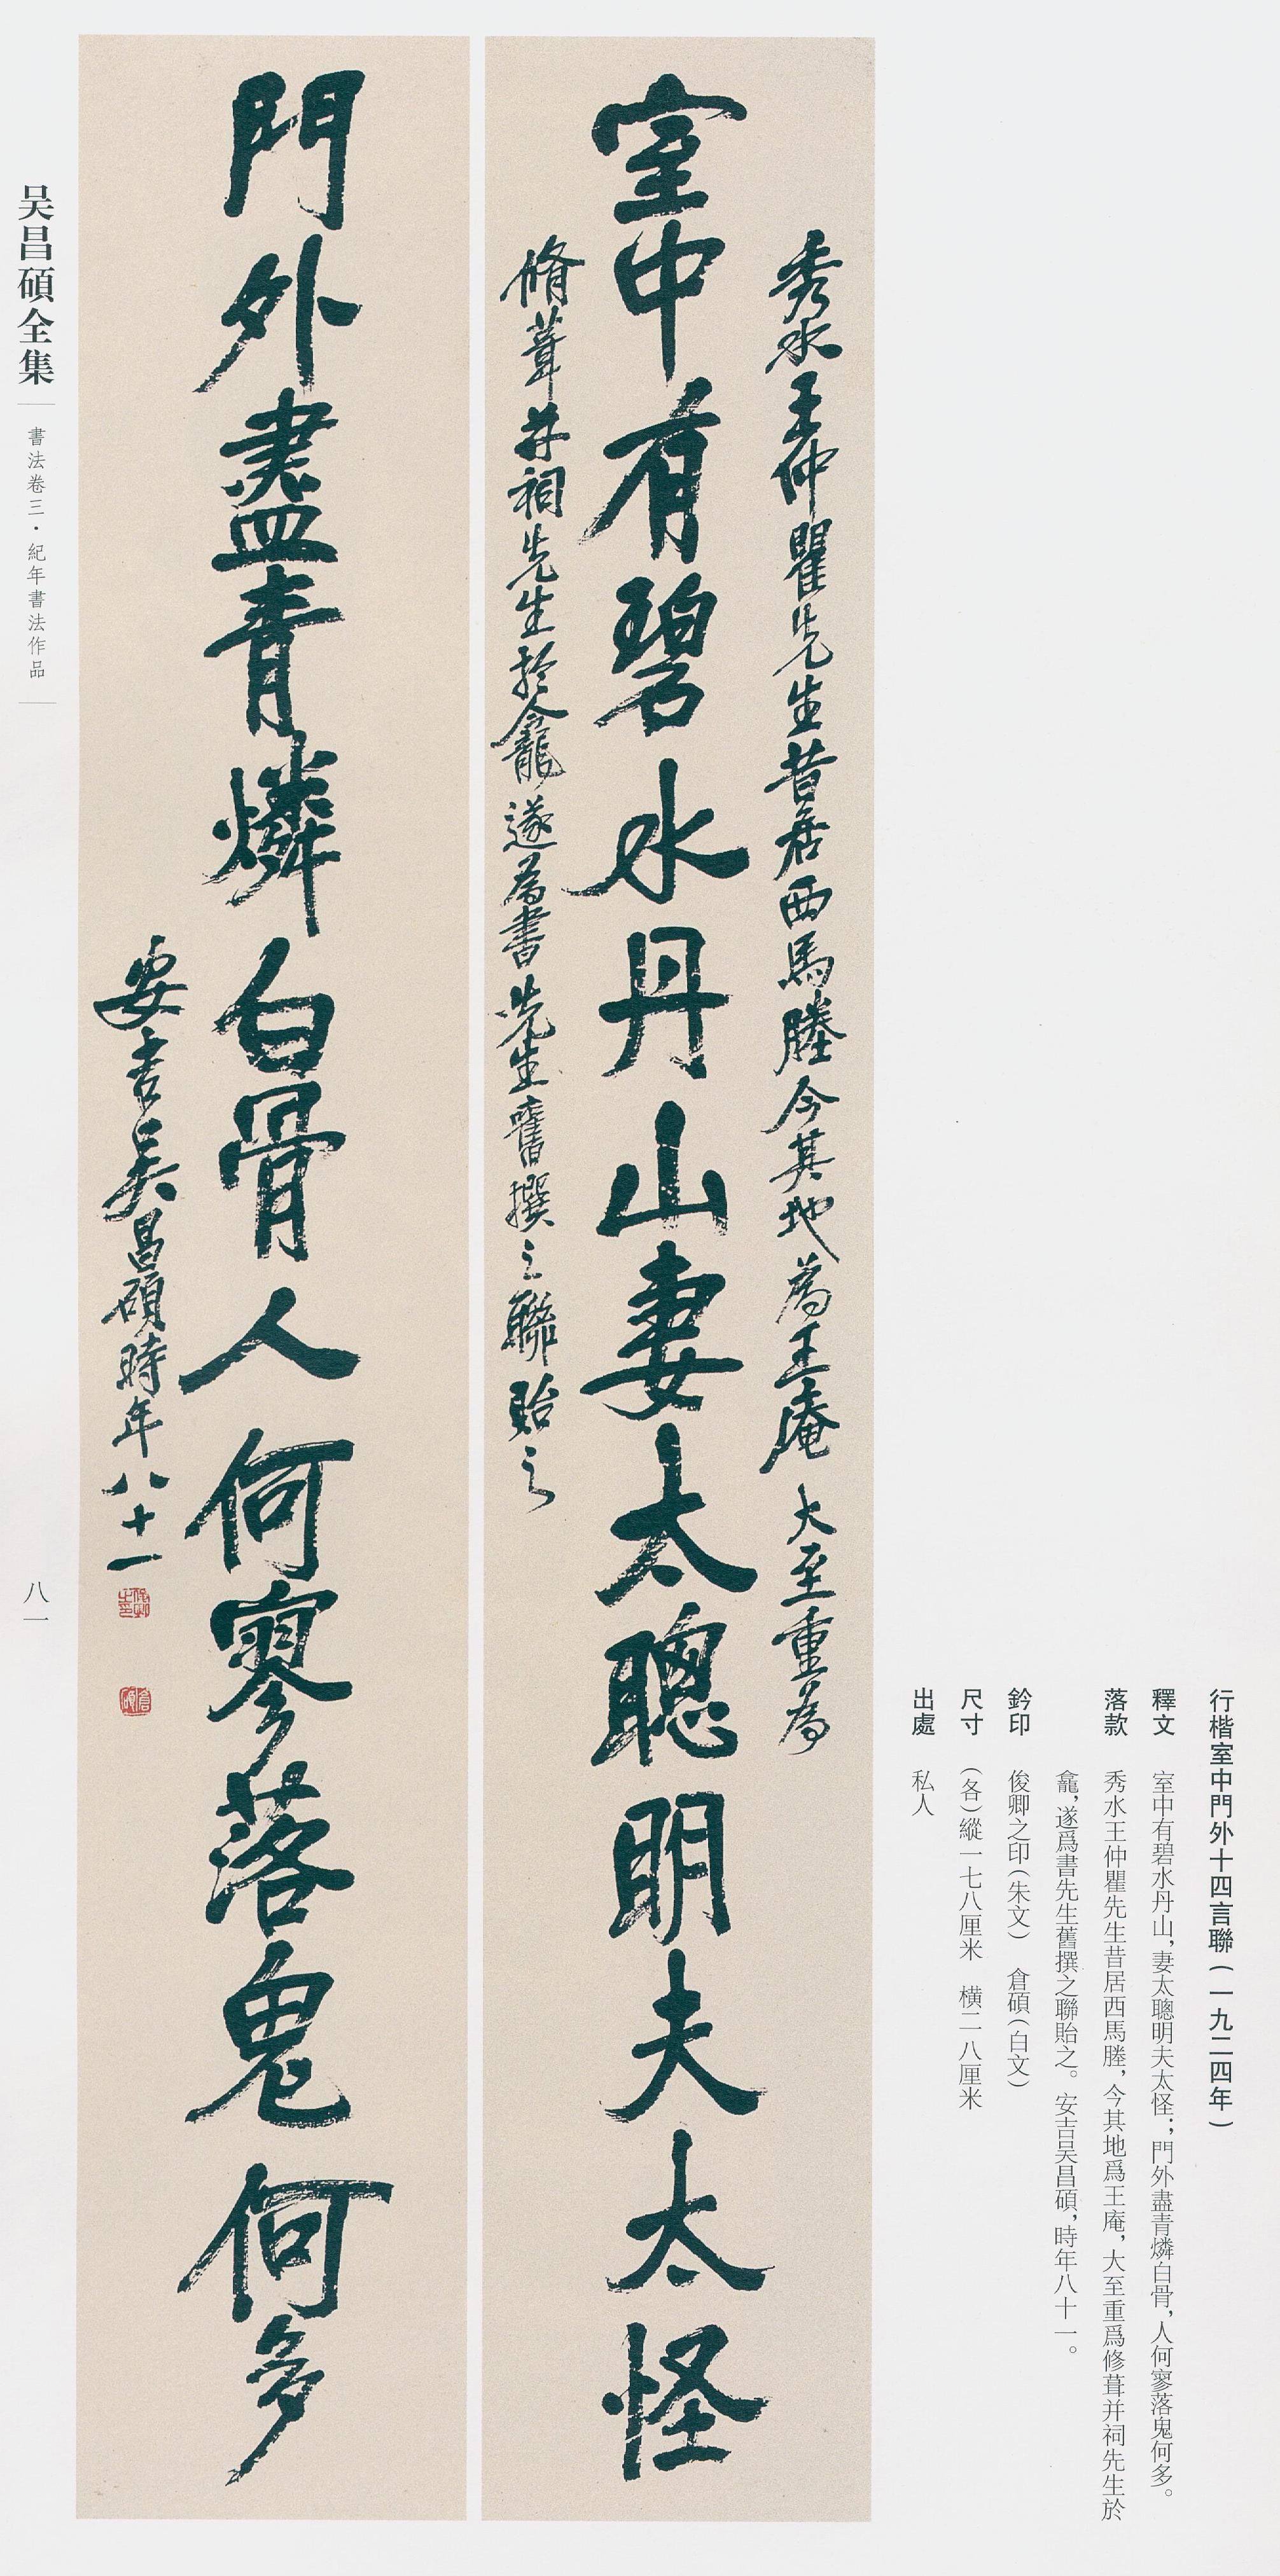 行楷室中門外十四言聯(一九二四年)
釋文 室中有碧水丹山,妻太聰明夫太怪;門外盡青燐白骨,人何寥落鬼何多。
落款 秀水王仲瞿先生昔居西馬塍,今其地爲王庵,大至重爲修葺并祠先生於
龕,遂爲書先生舊撰之聯貽之。安吉吴昌碩,時年八十一。
鈐印 俊卿之印(朱文) 倉碩(白文)
尺寸 (各)縱一七八厘米 橫二八厘米
出處 私人
秀水王仲瞿先生昔居西馬塍今其地為王庵大至重為
室中有碧水丹山妻太聰明夫太怪
脩葺并祠先生於龕遂為書先生舊撰之聯貽之
門外盡青燐白骨人何寥落鬼何多
安吉吴昌碩時年八十一
俊卿之印
倉碩
吴昌碩全集
書法卷三·紀年書法作品
八一